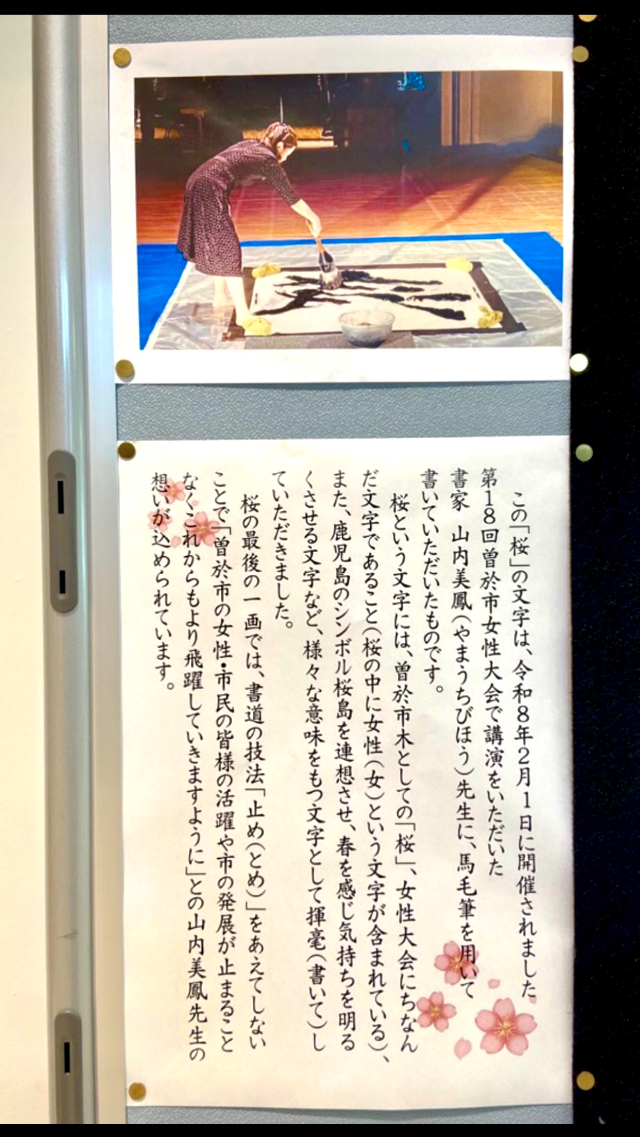 この「桜」の文字は、令和８年２月１日に開催されました
第１８回曽於市女性大会で講演をいただいた
書家　山内美鳳（やまうちびほう）先生に、馬毛筆を用いて
書いていただいたものです。
桜という文字には、曽於市木としての「桜」、女性大会にちなん
だ文字であること（桜の中に女性（女）という文字が含まれている）、
また、鹿児島のシンボル桜島を連想させ、春を感じ気持ちを明る
くさせる文字など、様々な意味をもつ文字として揮毫（書いて）し
ていただきました。
桜の最後の一画では、書道の技法「止め（とめ）」をあえてしない
ことで「曽於市の女性・市民の皆様の活躍や市の発展が止まること
なくこれからもより飛躍していきますように」との山内美鳳先生の
想いが込められています。